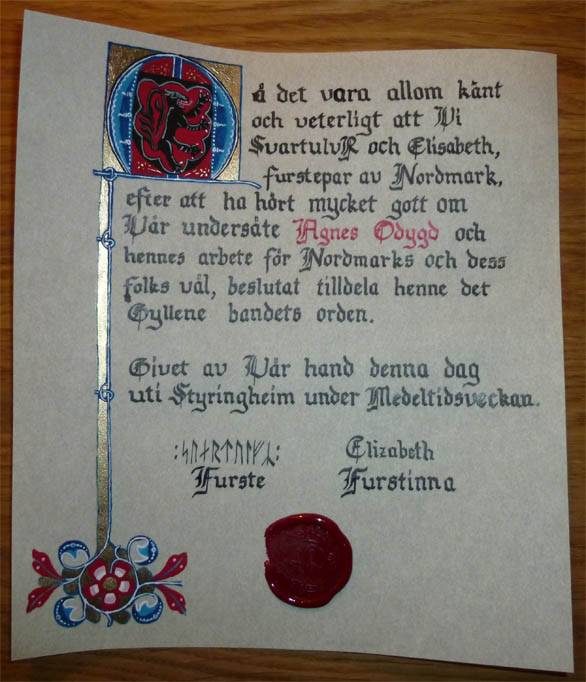 Må det vara allom känt
och veterligt att Vi
SvartulvR och Elisabeth,
furstepar av Nordmark,
efter att ha hört mycket gott om
Vår undersåte Agnes Odygd och
hennes arbete för Nordmarks och dess
folks väl, beslutat tilldela henne det
Gyllene bandets orden.
Givet av Vår hand denna dag
uti Styringheim under Medeltidsveckan.
:ᛋᚢᛅᚱᛏᚢᛚᚠᛦ: Elizabeth
Furste Furstinna